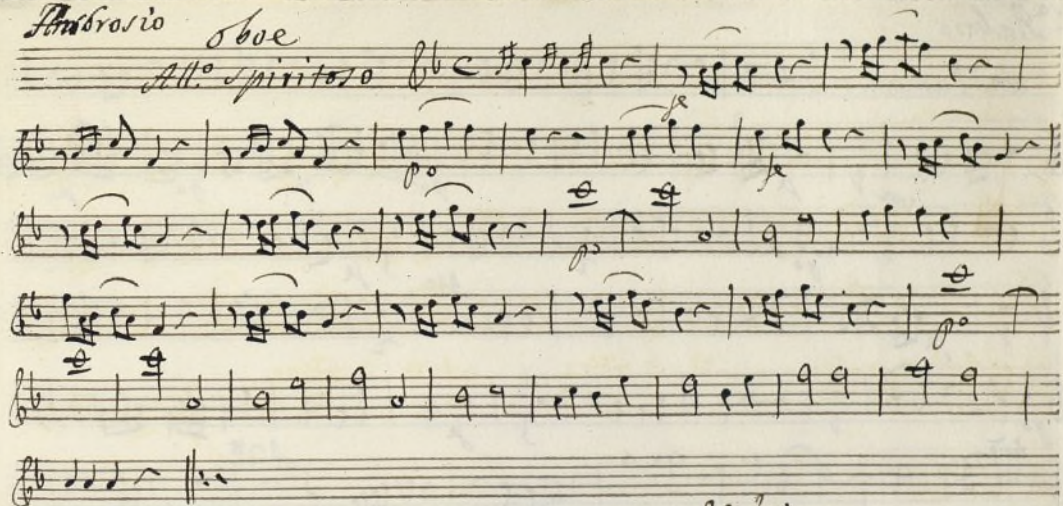 Ambrosio
Oboe
All.º Spiritoso
fe
po
fe
po
po